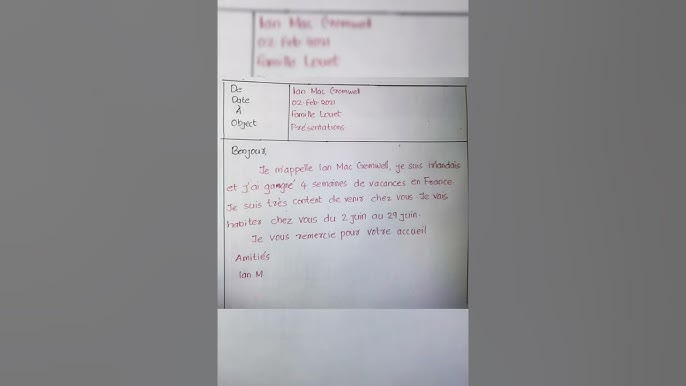 Ian Mac Cremwell
02 Feb 2021
Famille Louet
De Ian Mac Cremwell
Date 02-Feb-2021
À Famille Louet
Object Présentations
Bonjour,
Je m'appelle Ian Mac Cremwell, je suis irlandais
et j'ai gangné 4 semaines de vacances en France.
Je suis très content de venir chez vous. Je vais
habiter chez vous du 2 juin au 29 juin.
Je vous remercie pour votre accueil
Amitiés
Ian M